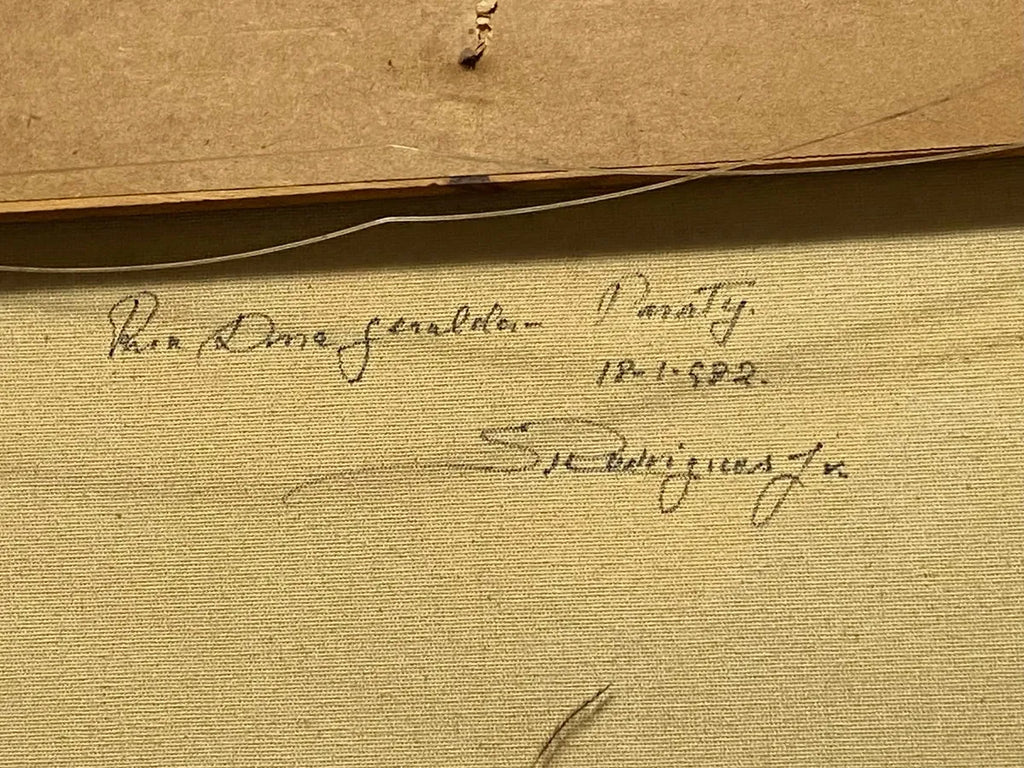 Rua Dona Geralda- Paraty.
18-1-982.
Rodrigues Jr